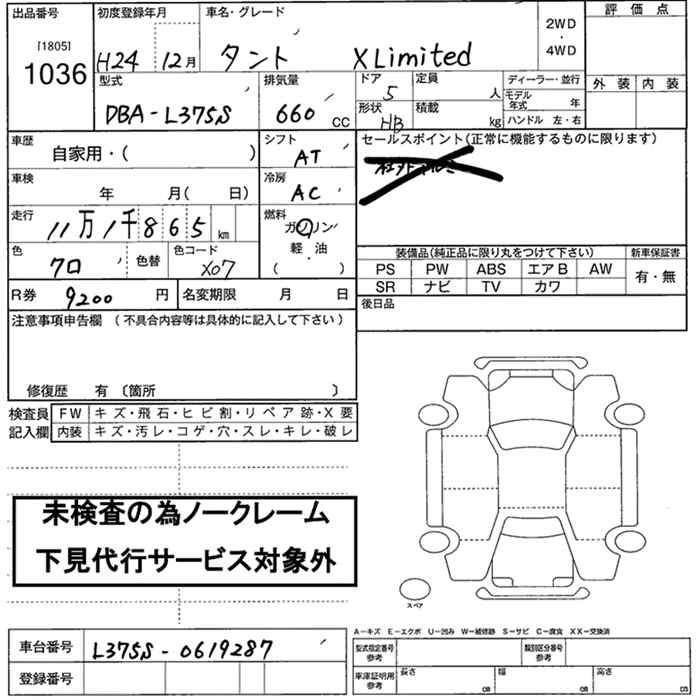 出品番号 初度登録年月 車名・グレード 評価点
[1805] 1036 H24 12月 タント X Limited 2WD・4WD
型式 排気量 ドア 定員 ディーラー・並行 外装 内装
DBA-L375S 660 CC 5 人 モデル年式 年
形状 積載 ハンドル 左・右
HB kg
車歴 シフト セールスポイント(正常に機能するものに限ります)
自家用・( ) AT
車検 冷房
年 月( 日) AC
走行 燃料
11万1千865km ガソリン
軽・油
( ・ )
色 色替 色コード 装備品(純正品に限り丸をつけて下さい) 新車保証書
クロ X07 PS PW ABS エアB AW 有・無
SR ナビ TV カワ
R券 9200円 名変期限 月 日 後日品
注意事項申告欄 (不具合内容等は具体的に記入して下さい)
修復歴 有 〔箇所 〕
検査員 FW キズ・飛石・ヒビ割・リペア跡・X要
記入欄 内装 キズ・汚レ・コゲ・穴・スレ・キレ・破レ
未検査の為ノークレーム
下見代行サービス対象外
スペア
A-キズ E-エクボ U-凹み W-補修跡 S-サビ C-腐食 XX-交換済
車台番号 L375S-0619287 型式指定番号 参考 類別区分番号 参考
登録番号 車庫証明用 参考 長さ cm 幅 cm 高さ cm